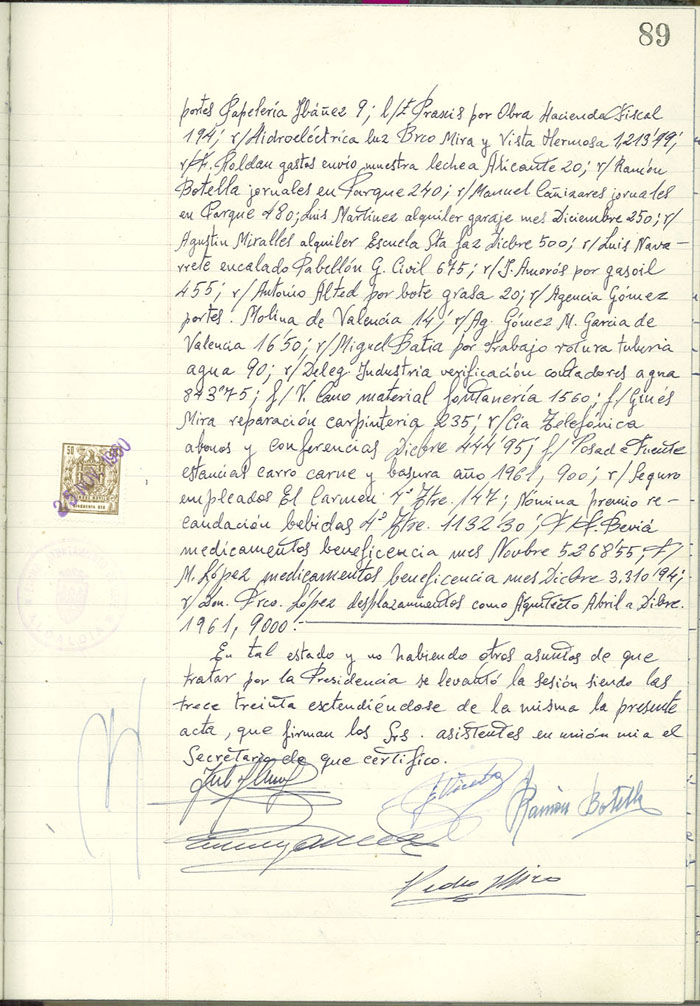 89
portes Papelería Ibáñez 9; l/ Praxis por Obra Hacienda Fiscal
194; r/ Hidroeléctrica luz Brco Mira y Vista Hermosa 1,213'79;
r/ F. Roldan gastos envio muestra leche a Alicante 20; r/ Ramón
Botella jornales en Parque 240; r/ Manuel Cañizares jornales
en Parque 480; Luis Martinez alquiler garaje mes Diciembre 250; r/
Agustin Miralles alquiler Escuela Sta faz Dicbre 500; r/ Luis Nava-
rrete encalado Pabellón G. Civil 675; r/ J. Amorós por gasoil
455; r/ Antonio Alted por bote grasa 20; r/ Agencia Gómez
portes. Molina de Valencia 14; r/ Ag. Gómez M. Garcia de
Valencia 16'50; r/ Miguel Batia por trabajo rotura tuberia
agua 90; r/ Deleg. Industria verificación contadores agua
843'75; f/ V. Cano material fontanería 1560; f/ Ginés
Mira reparación carpinteria 235; r/ Cia Telefónica
abonos y conferencias Dicbre 444'95; f/ Posada Fuente
estancias carro carne y basura año 1961, 900; r/ Seguro
empleados El Carmen 4º Ztre. 147; Nómina premio re-
caudación bebidas 4º Ztre. 1132'30; F/ Beviá
medicamentos beneficencia mes Novbre 5,268'55; F/
M. López medicamentos beneficencia mes Dicbre 3,310'94;
r/ Don. Frco. López desplazamientos como Aquitecto Abril a Dibre.
1961, 9000.-
En tal estado y no habiendo otros asuntos de que
tratar por la Presidencia se levantó la sesión siendo las
trece treinta extendiéndose de la misma la presente
acta, que firman los Srs. asistentes en unión mia el
Secretario de que certifico.
Ramón Botella
Pedro Miro
50
25 NOV. 1960
ALCALDIA